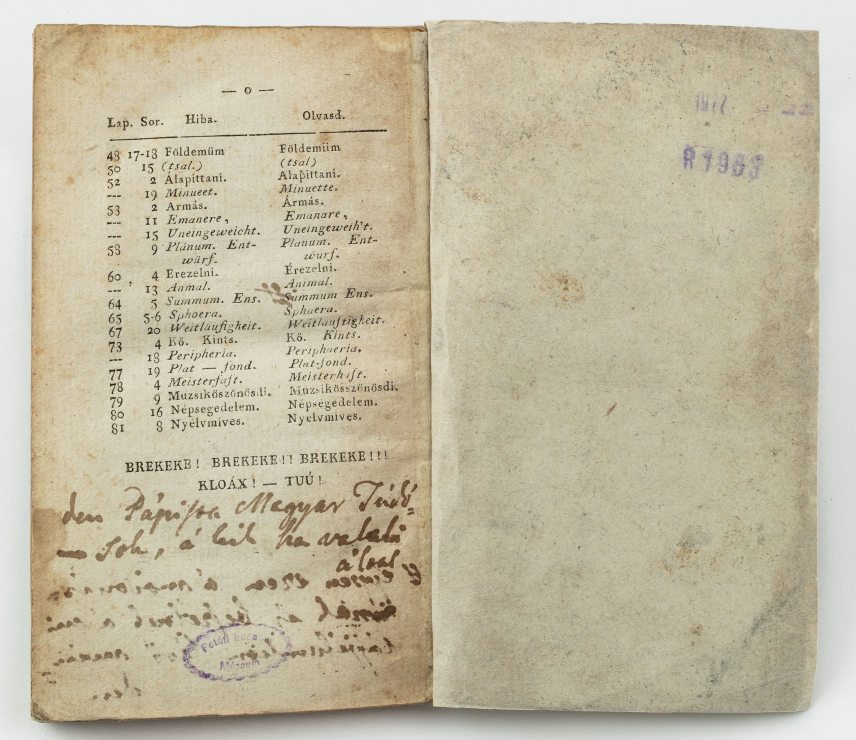 — o —
Lap. Sor. Hiba. Olvasd.
48 17-18 Földemüm Földemiim
50 15 (tsal.) (tsal)
52 2 Álapittani. Alapittani.
--- 19 Minueet. Minuette.
53 2 Armás. Ármás.
--- 11 Emanere, Emanare,
--- 15 Uneingeweicht. Uneingeweih't.
58 9 Plánum. Ent- Planum. Ent-
würf. wurf.
60 4 Erezelni. Érezelni.
--- 13 Anmal. Animal.
64 5 Summum. Ens. Summum Ens.
65 5-6 Sphoera. Sphaera.
67 20 Weitlaufigkeit. Weitlauftigkeit.
73 4 Kö. Kints. Kö. Kints.
--- 18 Peripheria. Periphaeria.
77 19 Plat — fond. Plat-fond.
78 4 Meisterfaft. Meisterhaft.
79 9 Muzsiköszönösdi. Muzsikösszönösdi.
80 16 Népsegedelem. Népsegedelem.
81 8 Nyelvmives. Nyelvmives.
BREKEKE! BREKEKE!! BREKEKE!!!
KLOÁX! — TUÚ!
den Pápista Magyar Túdó-
sok, á kik ha valaki
Petőfi Irod.
Múzeum
1977
R 1963